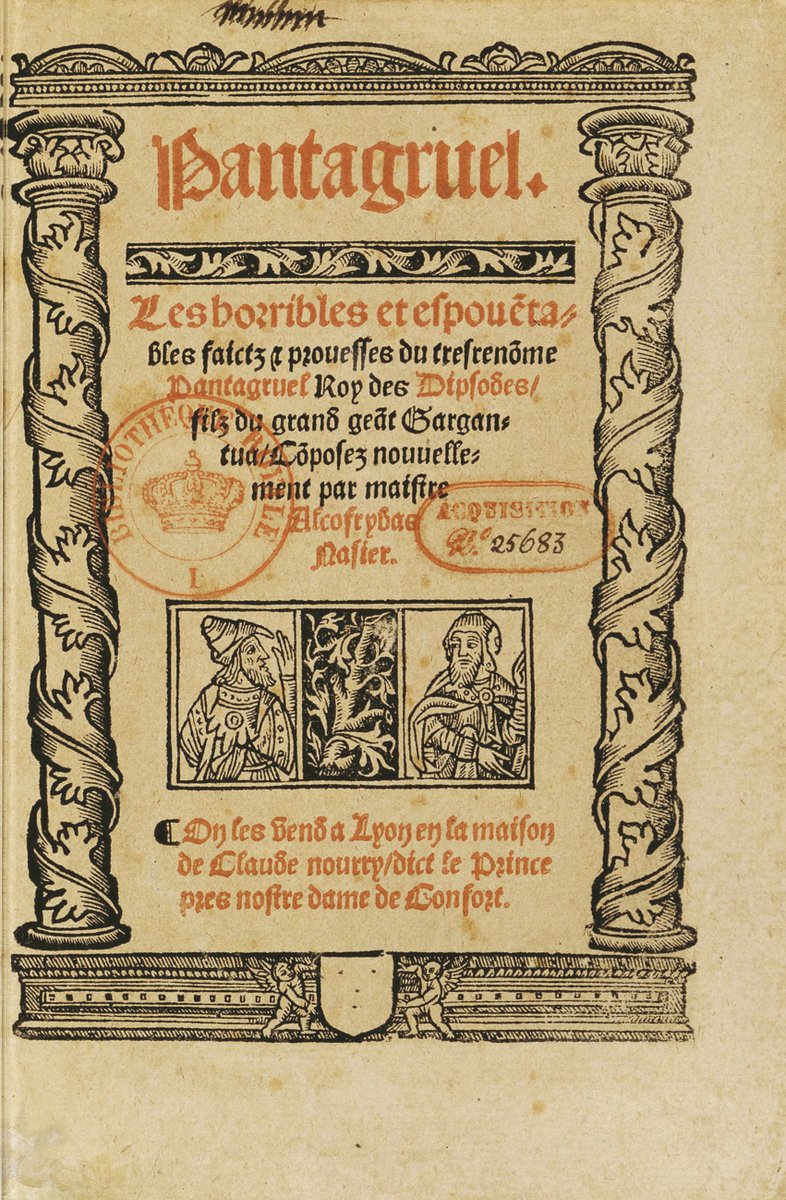 Pantagruel.
Les horribles et espouẽta-
bles faictz ⁊ prouesses du tresrenõme
Pantagruel Roy des Dipsodes/
filz du grand geãt Gargan-
tua/Cõposez nouuelle-
ment par maistre
Alcofrybas
Nasier.
BIBLIOTHÈQUE ROYALE
I
ACQUISITION
No. 25683
¶ On les vend a Lyon en la maison
de Claude nourry/dict le Prince
pres nostre dame de Confort.